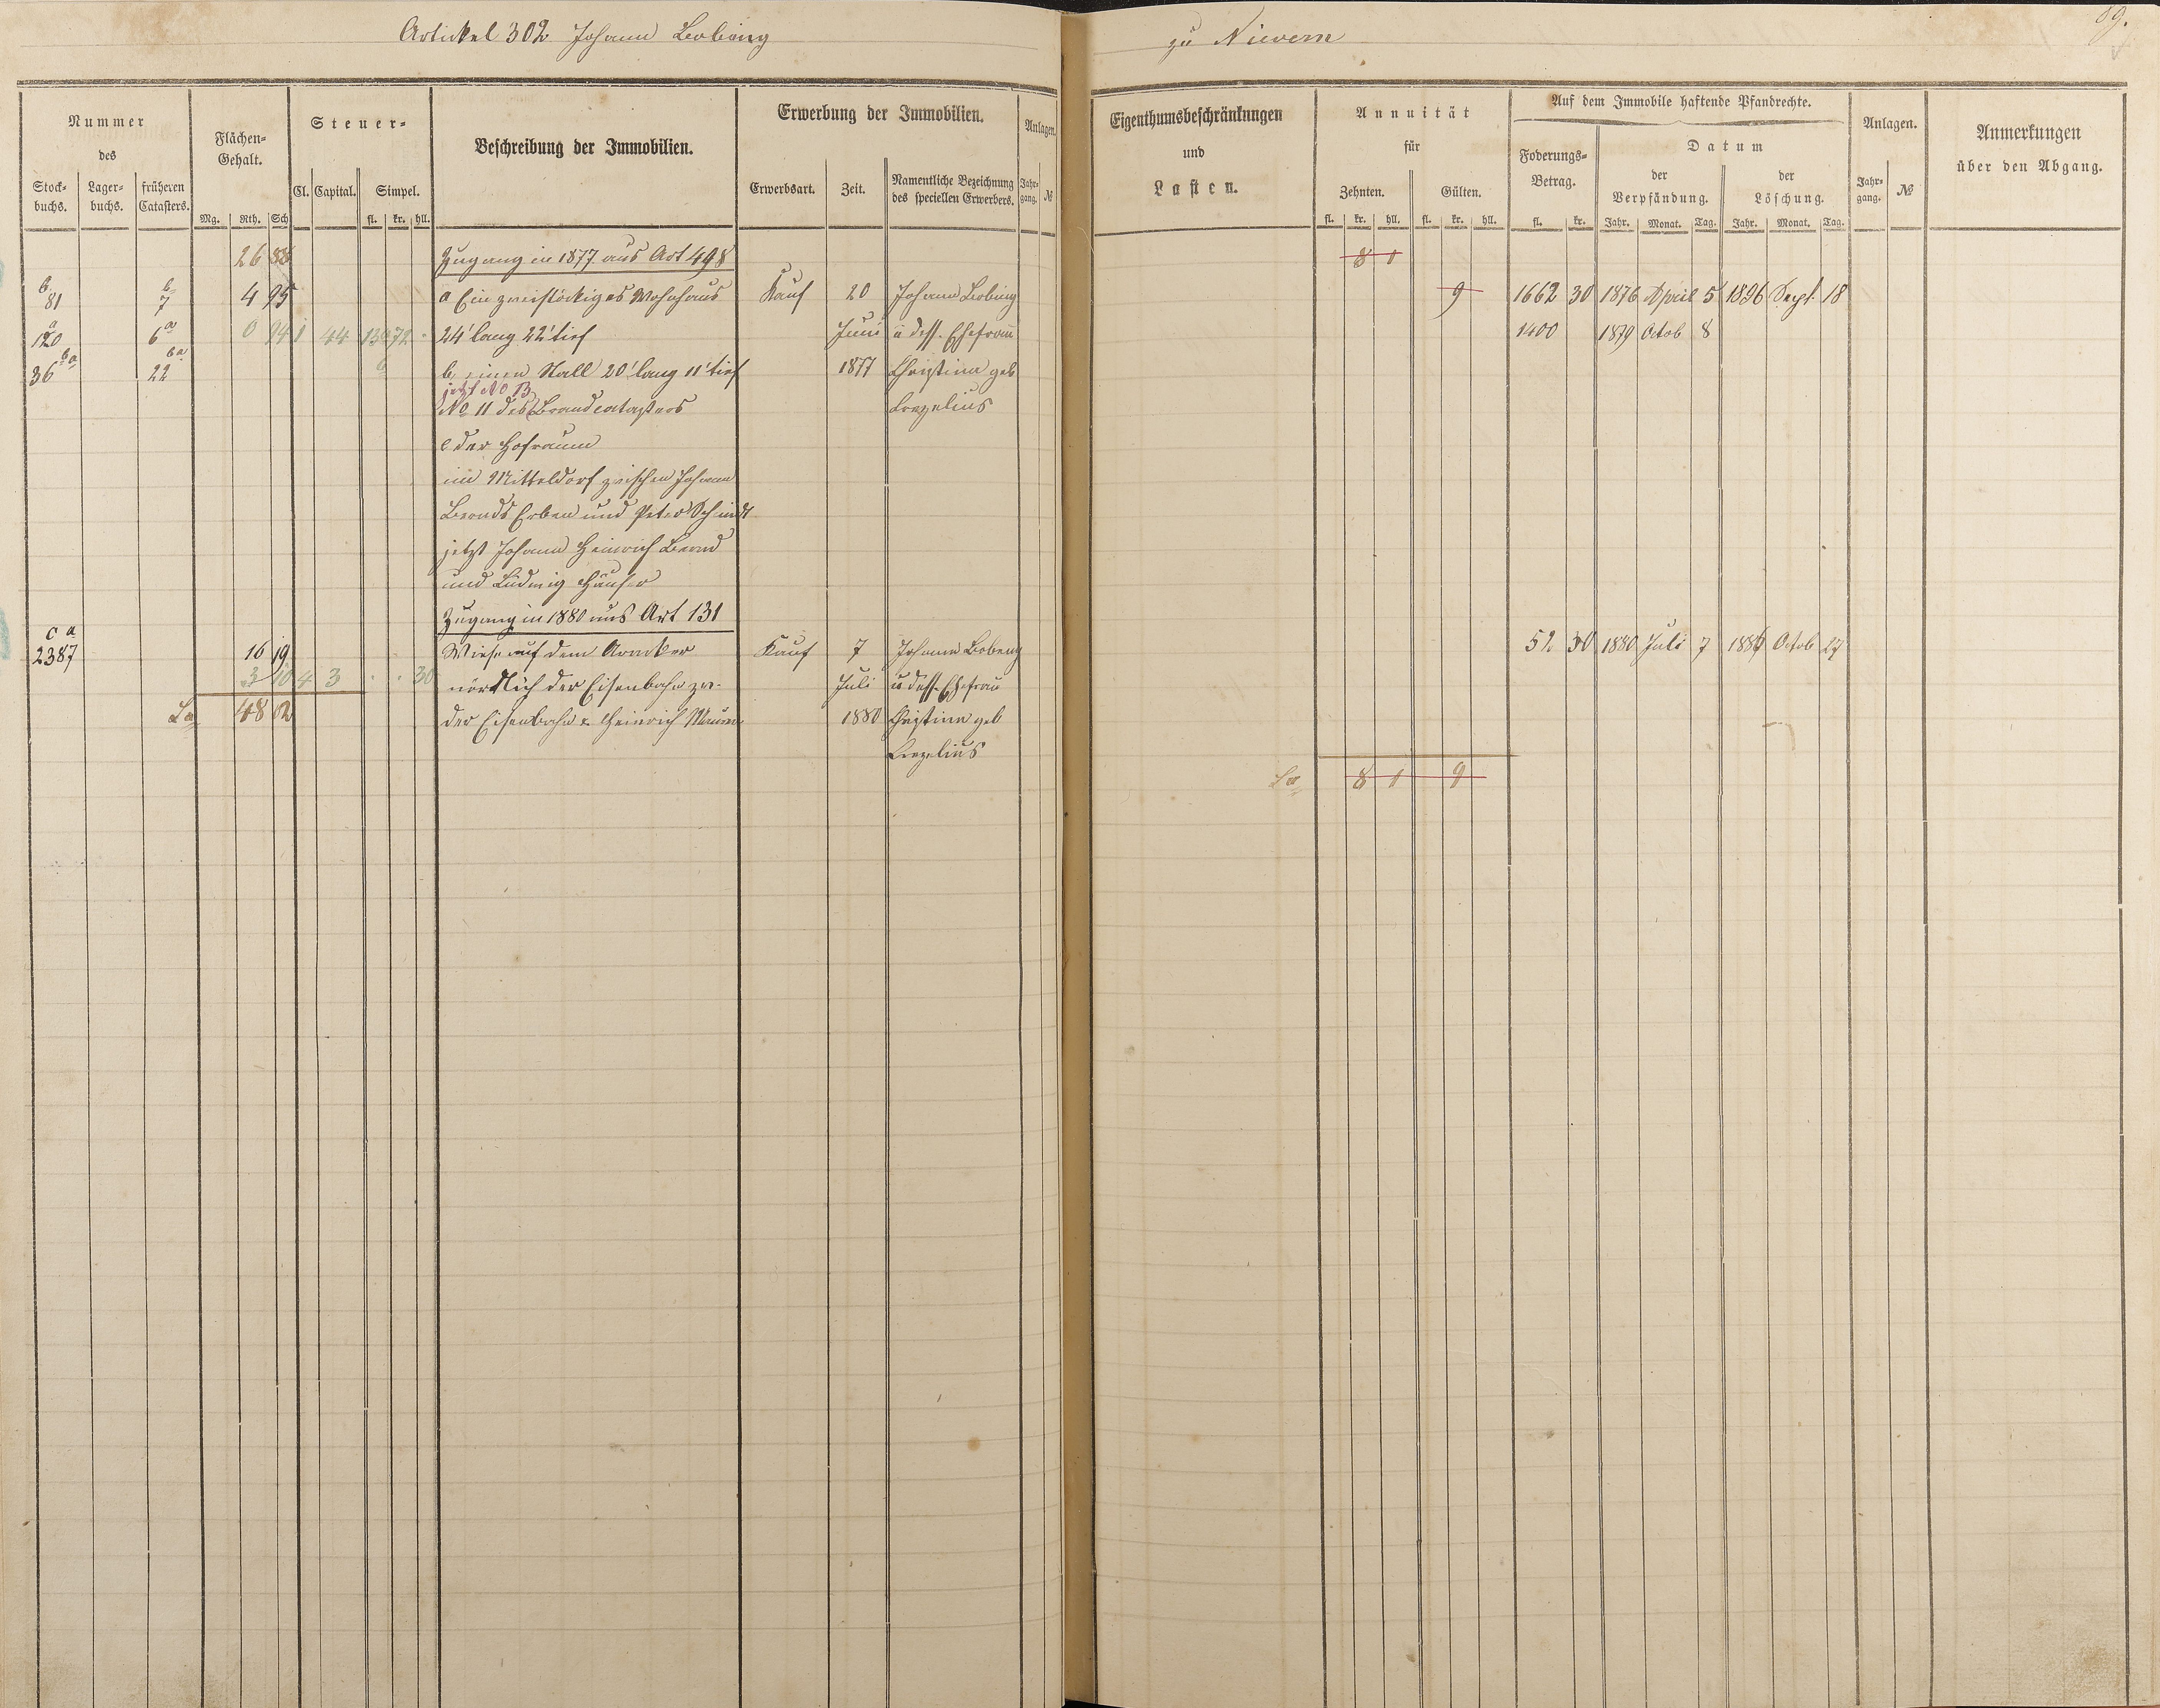 Artickel 302 Johann Bobeng
zu Nievern
89.
Nummer
des
Stock-
buchs.
Lager-
buchs.
früheren
Catasters.
Flächen-
Gehalt.
Mg. Rth. Sch
Steuer-
Cl. Capital. Simpel.
fl. kr. hll.
Beschreibung der Immobilien.
Erwerbung der Immobilien.
Erwerbsart. Zeit.
Namentliche Bezeichnung
des speciellen Erwerbers.
Anlagen.
Jahr-
gang. №
Eigenthumsbeschränkungen
und
Lasten.
Annuität
für
Zehnten. Gülten.
fl. kr. hll. fl. kr. hll.
Auf dem Immobile haftende Pfandrechte.
Foderungs-
Betrag.
fl. kr.
Datum
der
Verpfändung.
Jahr. Monat. Tag.
der
Löschung.
Jahr. Monat. Tag.
Anlagen.
Jahr-
gang. №
Anmerkungen
über den Abgang.
26 88 Zugang in 1877 aus Art 498 8 1
b b
81 7 4 95 a Ein zweistöckiges Wohnhaus Kauf 20 Johann Bobeng 9 1662 30 1876 April 5 1896 Sept. 18
a a
120 6 0 94 1 44 24' lang 22' tief Juni u dess. Ehefrau 1400 1879 Octob 8
ba ba
36 22 b, einen Stall 20' lang 11' tief 1877 Christina geb
jetzt No 13
No 11 des Brandcatasters
c der Hofraum
im Mitteldorf zwischen Johann
Bernds Erben und Peter Schmidt
jetzt Johann Heinrich Bernd
und Ludwig Häuser
Zugang in 1880 aus Art 131
c a
2387 16 19 Wiese auf dem Kauf 7 Johann Bobeng 52 30 1880 Juli 7 Octob 27
3 10 4 3 . . 30 nördlich der Eisenbahn zw. Juli u dess. Ehefrau
La 48 02 der Eisenbahn & Heinrich 1880 Christina geb
La 8 1 9